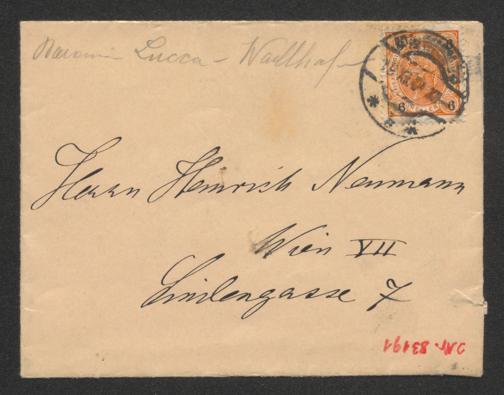 Baronin Lucca - Wallhofen
6 6
Herrn Heinrich Neumann
Wien VII
Lindengasse 7
J.Nr. 83191